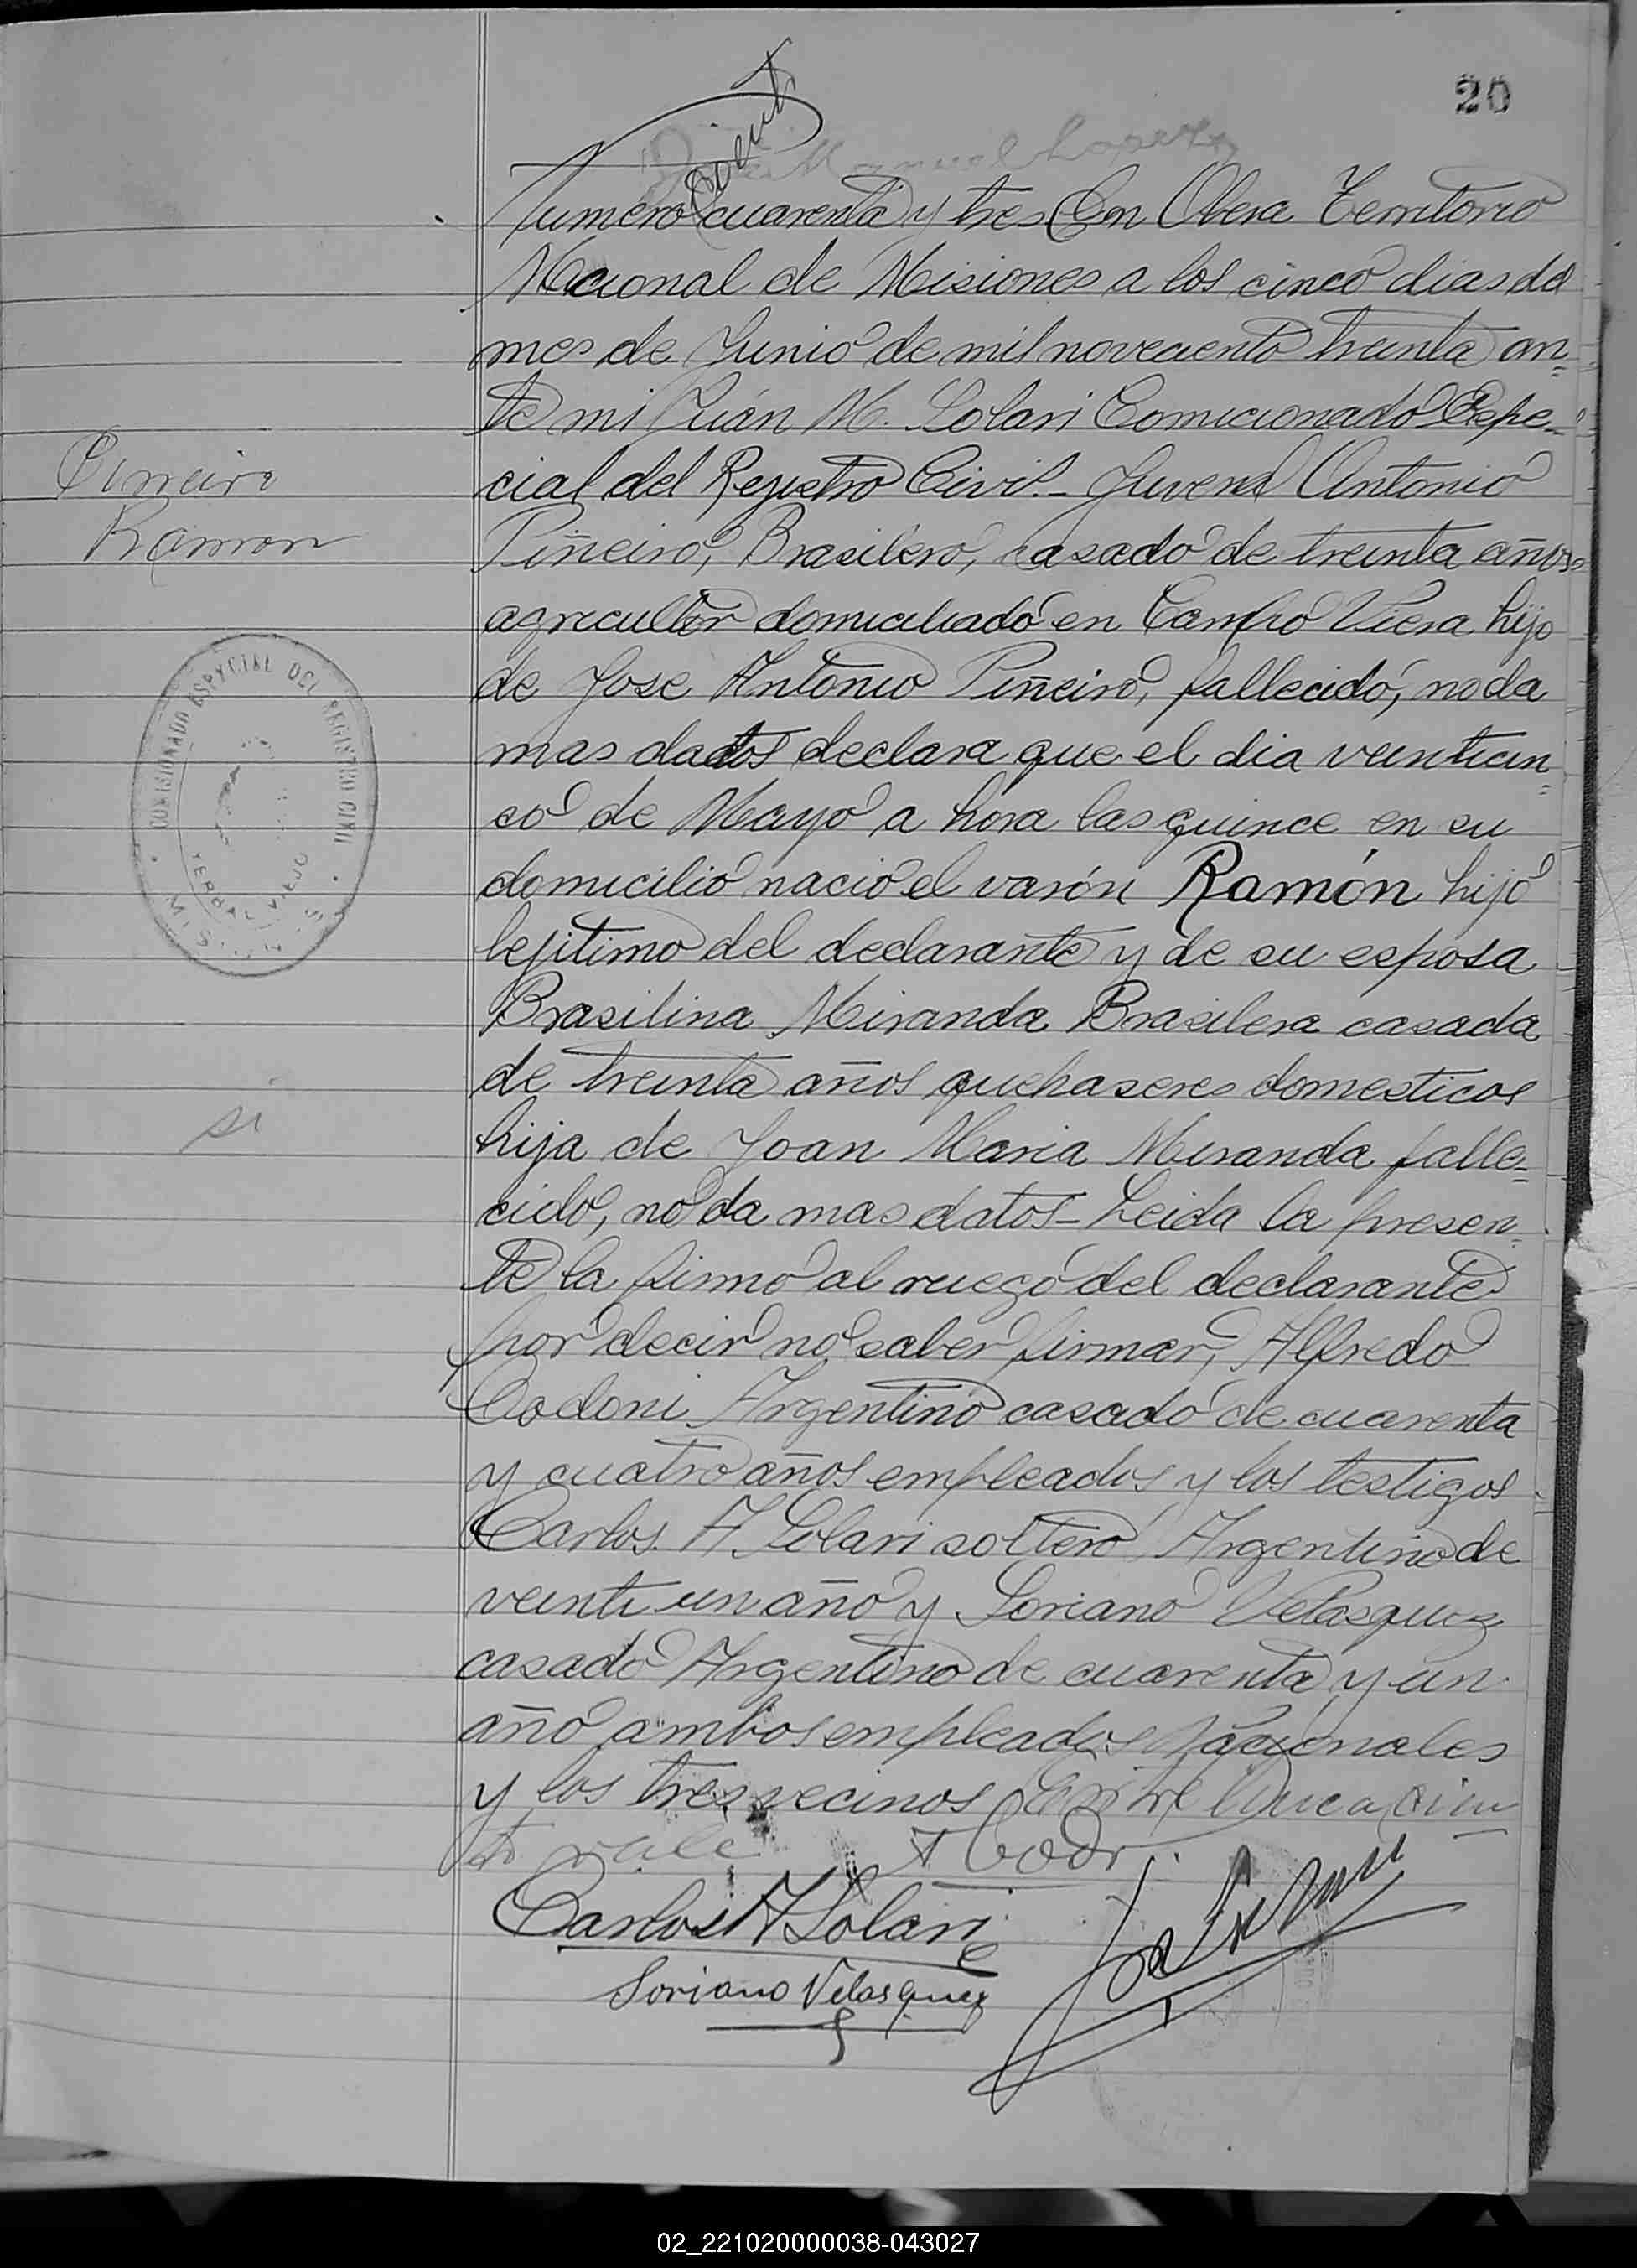 20
ciento
Numero cuarenta y tres En Obera Territorio
Nacional de Misiones a los cinco dias del
mes de Junio de mil noveciento treinta an=
te mi Juán M. Solari Comicionado Espe=
cial del Registro Civil_ Juvenal Antonio
Piñeiro, Brasilero, casado de treinta años
agricultor domiciliado en Campo Viera hijo
de Jose Antonio Piñeiro, fallecido, no da
mas datos declara que el dia veinticin=
co de Mayo a hora las quince en su
domicilio nacio el varón Ramón hijo
lejitimo del declarante y de su esposa
Brasilina Miranda Brasilera casada
de treinta años quehaseres domesticos
hija de Joan Maria Miranda falle=
cido, no da mas datos_ Leida la presen=
te la firmo al ruego del declarante
por decir no saber firmar, Alfredo
Codoni Argentino casado de cuarenta
y cuatro años empleados y los testigos
Carlos A. Solari soltero Argentino de
veinti un año y Soriano Velasquez
casado Argentino de cuarenta y un
año ambos empleados Nacionales
y los tres vecinos Entre linea cien
to vale
Carlos A Solari
Soriano Velasquez
Piñeiro
Ramon
COMISIONADO ESPECIAL DEL REGISTRO CIVIL
YERBAL VIEJO
MISIONES
si
02_221020000038-043027